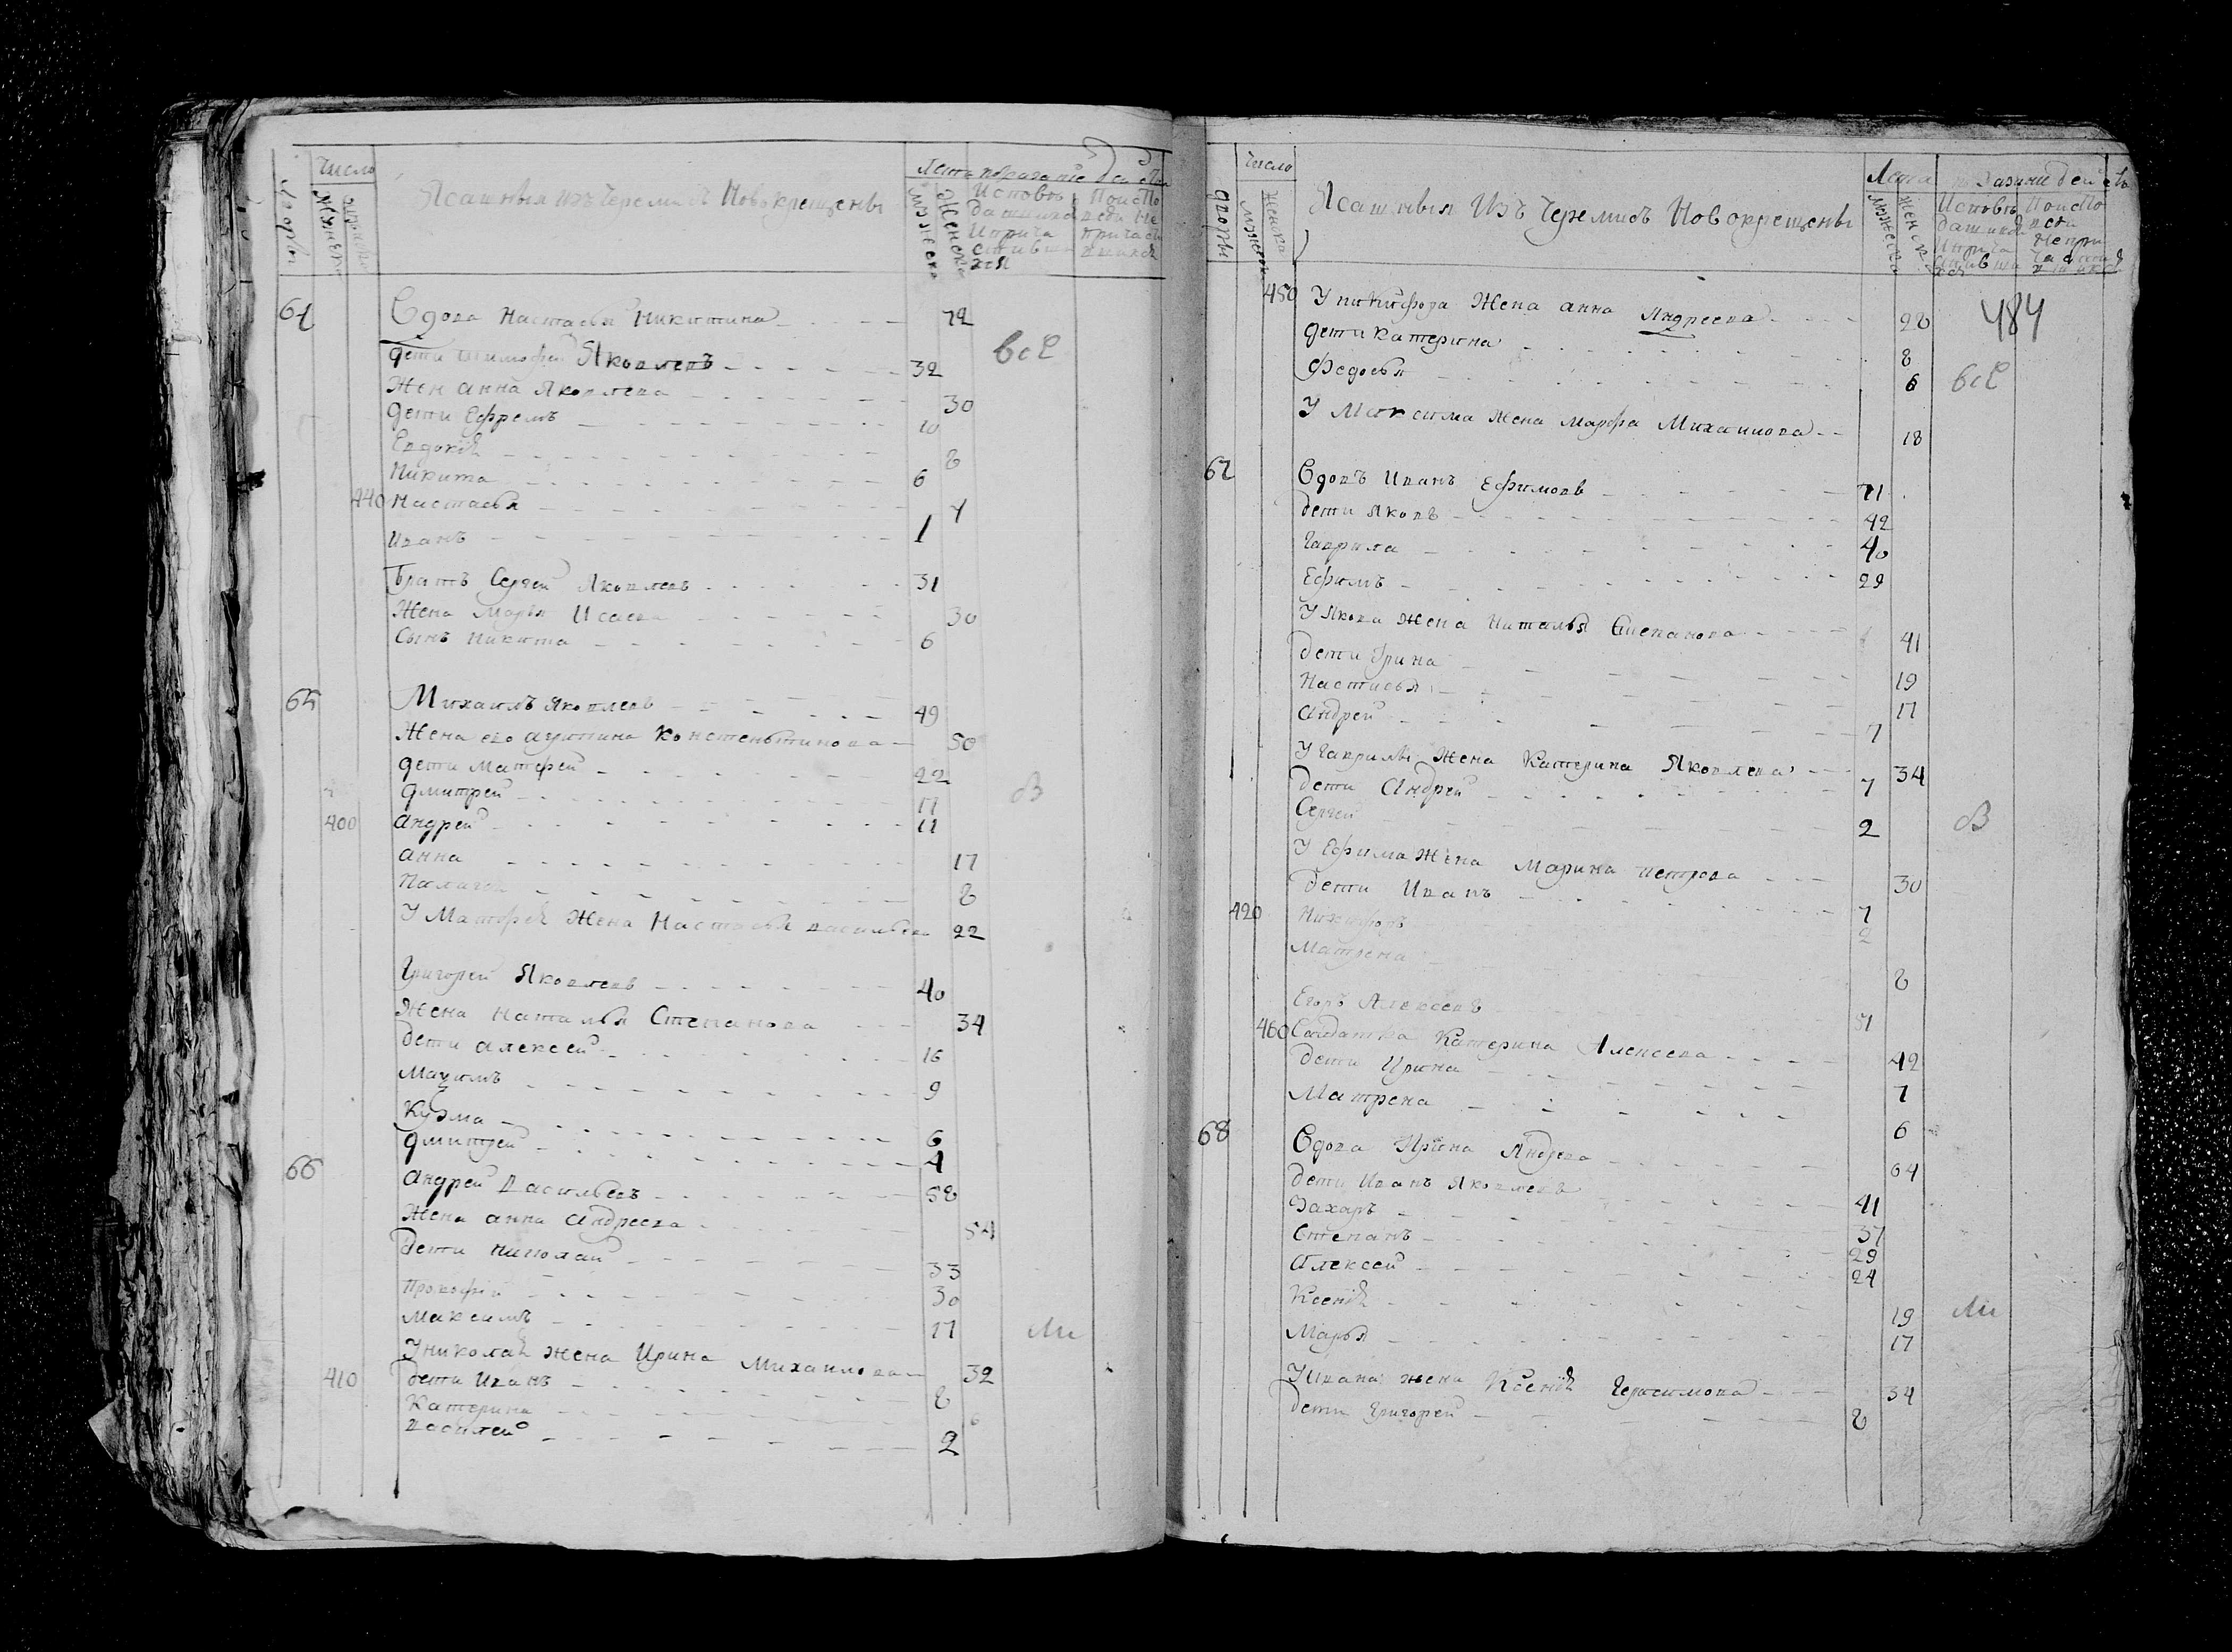 Число
Лета
показание действа
дворы
мужеска
женска
Ясашныя изъ Черемисъ Новокрещены
мужеска
женска
Исповѣ
давшихся
Инрича
стивши
хся
Поиспо
веди не
причас
64 Вдова Настасья Никитина 72
все
дети тимофей Яковлевъ 32
Жен анна Яковлева 30
дети Ефремъ 10
Евдокѣя 8
Никита 6
440 Настасья 4
Иванъ 1
Братъ Сергей Яковлевъ 31
Жена Марья Исаева 30
Сынъ Никита 6
65 Михаилъ Яковлевъ 49
Жена его акулина констеньтинова 50
дети Матфей 22
дмитрей 17
400 андрей 11
анна 17
Палагея 8
У Матфея Жена Настасья васильева 22
Григорей Яковлевъ 40
Жена наталья Степанова 34
дети алексей 16
Макимъ 9
Кузма 6
дмитрей 4
66 андрей васильевъ 58
Жена анна андреева 54
дети николай 33
Прокофій 30
Максимъ 17
У николая жена Ирина Михаилова 32
410 дети Иванъ 8
Катерина 6
василей 2
Число
дворы
мужеска
женска
Ясашныя Изъ Черемисъ Новокрещены
Лета
показание действа
мужеска
женска
Исповѣ
давшихся
Инрича
стивши
хся
Поиспо
веди
непри
484
450 У никифора Жена анна Андреева 28
дети катерина 8
Федосья 6
все
У Максима жена марфа Михаилова 18
67 Вдовъ Иванъ Ефимовъ 71
дети Яковъ 42
Гаврила 40
Ефимъ 29
У Якова Жена Наталья Степанова 41
дети Ирина 19
Настасья 17
андрей 7
У Гаврилы Жена Катерина Яковлева 34
дети Андрей 7
Сергей 2
У Ефима Жена Марина петрова 30
дети Иванъ 7
420 Никифоръ 2
Матрена 8
Егоръ Алексеевъ 51
460 Салдатка Катерина Алексеева 42
дети Ирина 7
Матрена 6
68 Вдова Ирина Андреева 64
дети Иванъ Яковлевъ 41
Захаръ 37
Степанъ 29
Алексей 24
Ксенѣя 19
Марья 17
У Ивана жена Ксенѣя Герасимова 34
дети Григорей 8